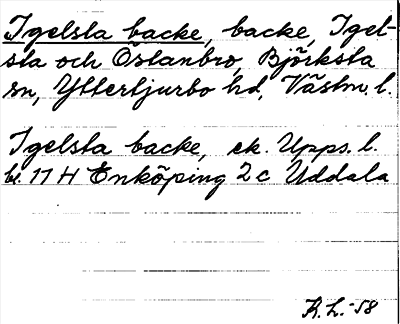 Igelsta backe, backe, Igel-
sta och Östanbro, Björksta
sn, Yttertjurbo hd, Västm. l.
Igelsta backe, ek. Upps. l.
bl. 11 H Enköping 2 c Uddala
K. L. -58